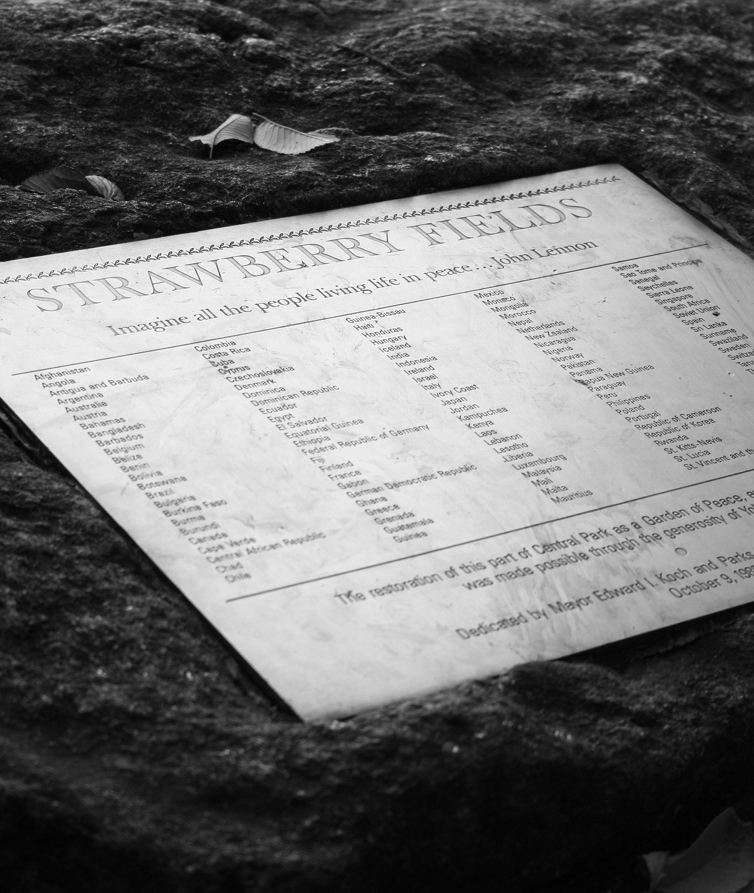 STRAWBERRY FIELDS
Imagine all the people living life in peace . . . John Lennon
Afghanistan
Angola
Antigua and Barbuda
Argentina
Australia
Austria
Bahamas
Bangladesh
Barbados
Belgium
Belize
Benin
Bolivia
Botswana
Brazil
Bulgaria
Burkina Faso
Burma
Burundi
Canada
Cape Verde
Central African Republic
Chad
Chile
Colombia
Costa Rica
Cuba
Cyprus
Czechoslovakia
Denmark
Dominica
Dominican Republic
Ecuador
Egypt
El Salvador
Equatorial Guinea
Ethiopia
Federal Republic of Germany
Fiji
Finland
France
Gabon
German Democratic Republic
Ghana
Greece
Grenada
Guatemala
Guinea
Guinea-Bissau
Haiti
Honduras
Hungary
Iceland
India
Indonesia
Ireland
Israel
Italy
Ivory Coast
Japan
Jordan
Kampuchea
Kenya
Laos
Lebanon
Lesotho
Liberia
Luxembourg
Malaysia
Mali
Malta
Mauritius
Mexico
Monaco
Mongolia
Morocco
Nepal
Netherlands
New Zealand
Nicaragua
Nigeria
Norway
Pakistan
Papua New Guinea
Paraguay
Peru
Philippines
Poland
Portugal
Republic of Cameroon
Republic of Korea
Rwanda
St. Kitts-Nevis
St. Lucia
St. Vincent and
Samoa
Sao Tome and Principe
Senegal
Seychelles
Sierra Leone
Singapore
South Africa
Soviet Union
Spain
Sri Lanka
Suriname
Swaziland
The restoration of this part of Central Park as a Garden of Peace,
was made possible through the generosity of
Dedicated by Mayor Edward I. Koch and Parks
October 9,